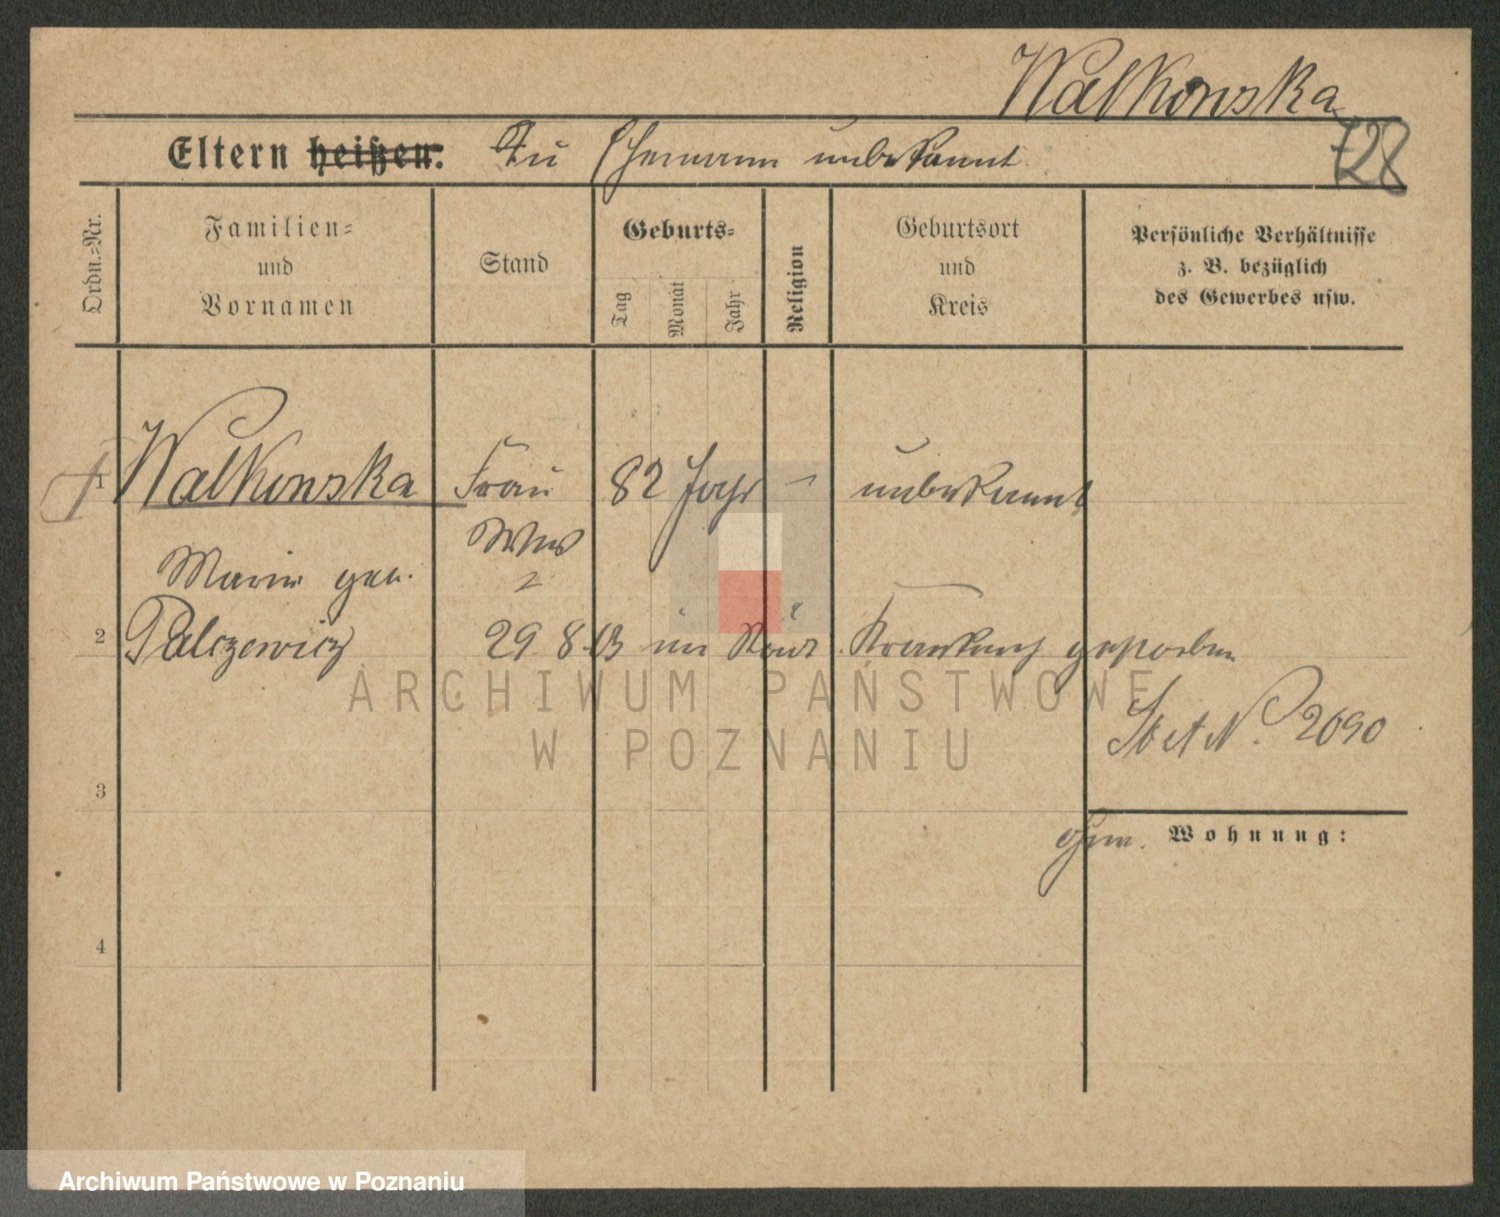 Walkowska
728
Eltern heißen: u. Ehemann unbekannt
Ordn.-Nr.
Familien-
und
Vornamen
Stand
Geburts-
Tag
Monat
Jahr
Religion
Geburtsort
und
Kreis
Persönliche Verhältnisse
z. B. bezüglich
des Gewerbes usw.
1 Walkowska Frau 82 Jahr - unbekannt
Wwe
Marie geb.
2 Palczewicz 29 8. 13 im Städt. Krankenh gestorben
St A N. 2690
3
Wohnung:
4
ARCHIWUM PAŃSTWOWE
W POZNANIU
Archiwum Państwowe w Poznaniu